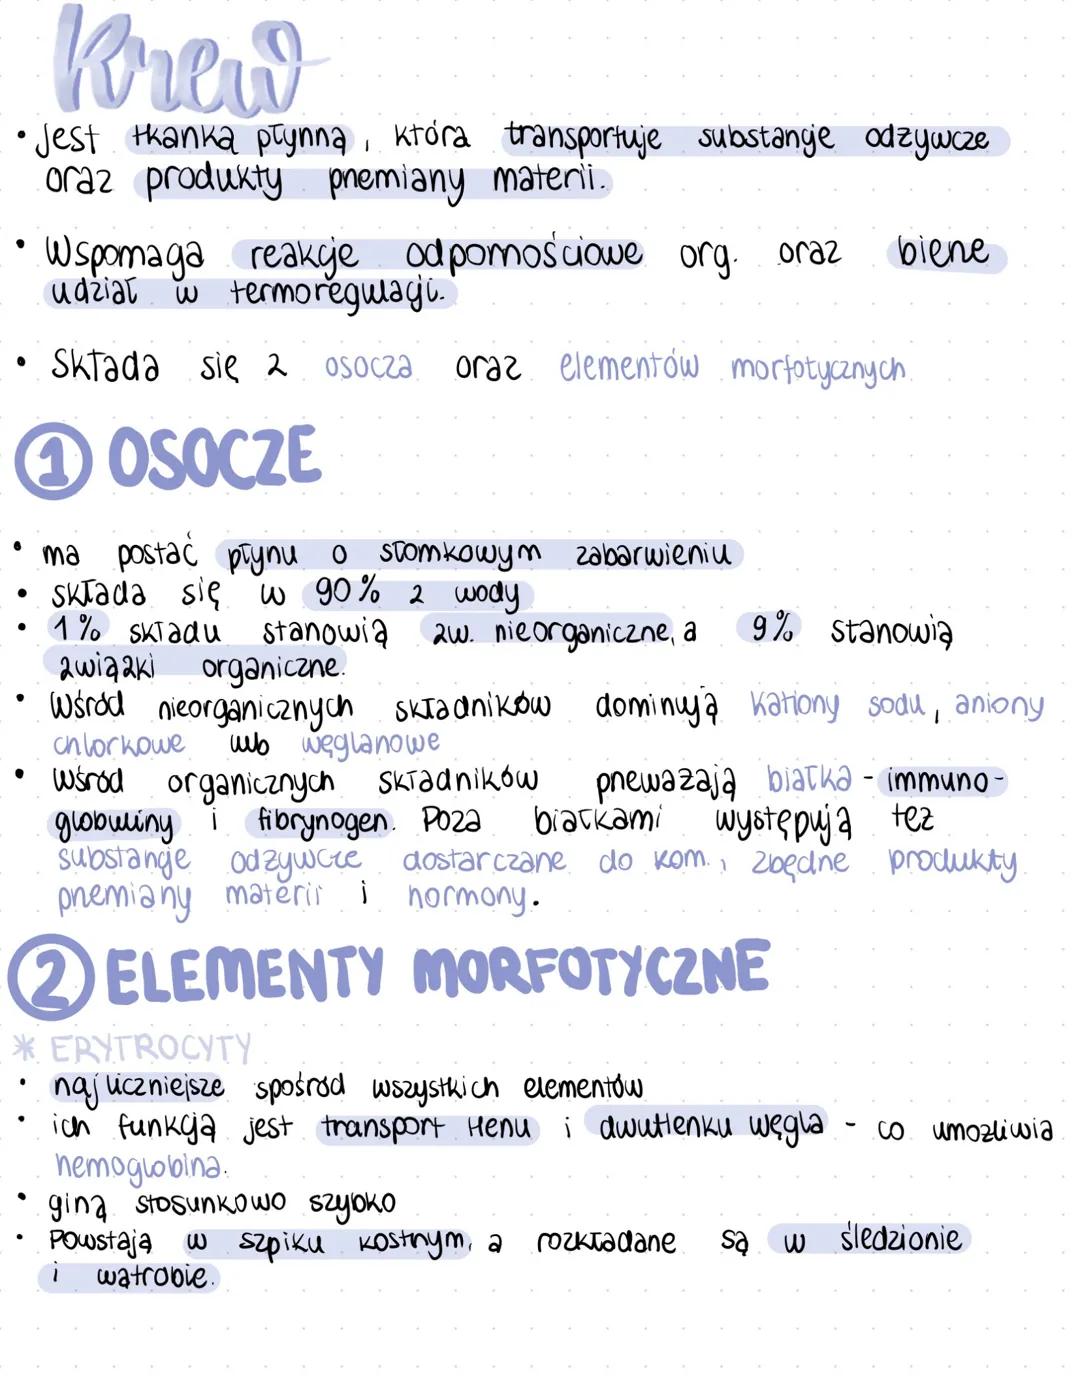 Krew
• Jest tkanką płynną, która transportuje substancje odżywcze
oraz produkty przemiany materii.
• Wspomaga reakcje odpornościowe org. oraz bierze
udział w termoregulacji.
• Składa się z osocza oraz elementów morfotycznych
1 OSOCZE
• ma postać płynu o słomkowym zabarwieniu
• składa się w 90% z wody
• 1% składu stanowią zw. nieorganiczne, a 9% stanowią
związki organiczne.
• Wśród nieorganicznych składników dominują kationy sodu, aniony
chlorkowe lub węglanowe
• Wśród organicznych składników przeważają białka - immuno-
globuliny i fibrynogen. Poza białkami występują też
substancje odżywcze dostarczane do kom., zbędne produkty
przemiany materii i hormony.
2 ELEMENTY MORFOTYCZNE
* ERYTROCYTY
• najliczniejsze spośród wszystkich elementów
• ich funkcją jest transport tlenu i dwutlenku węgla - co umożliwia
hemoglobina.
• giną stosunkowo szybko
• Powstają w szpiku kostnym, a rozkładane są w śledzionie
i wątrobie.